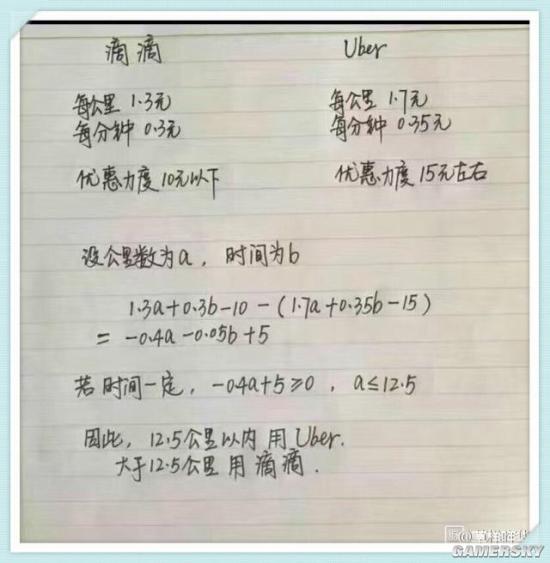 滴滴
Uber
每公里 1.3元
每公里 1.7元
每分钟 0.3元
每分钟 0.35元
优惠力度 10元以下
优惠力度 15元左右
设公里数为a, 时间为b
1.3a+0.3b-10-(1.7a+0.35b-15)
= -0.4a-0.05b+5
若时间一定, -0.4a+5≥0, a≤12.5
因此, 12.5公里以内 用Uber.
大于12.5公里 用 滴滴.
GAMERSKY